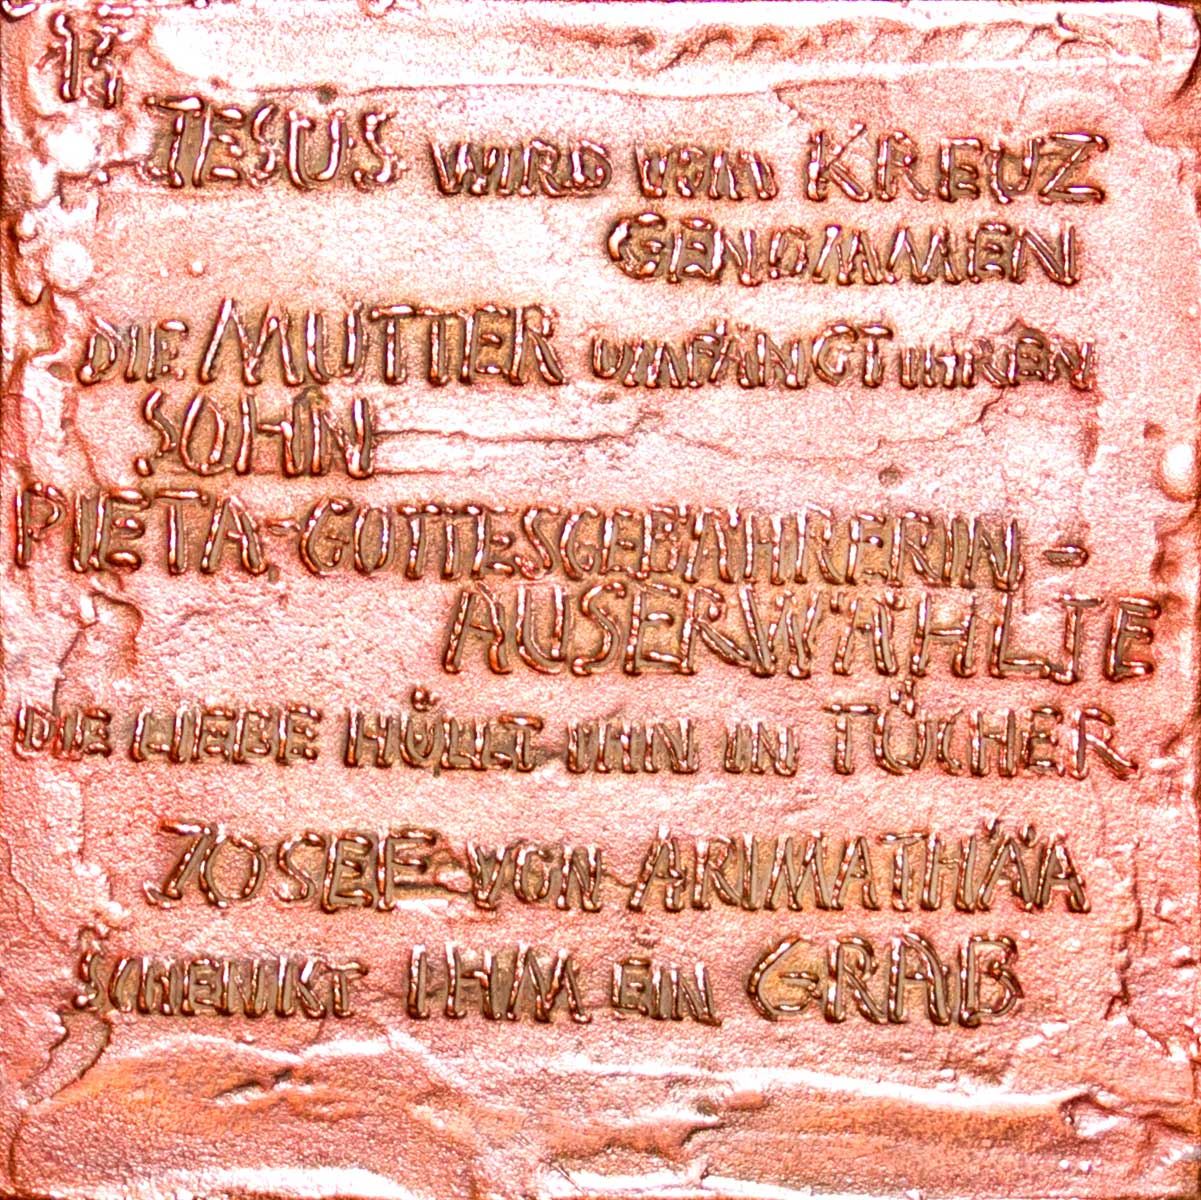 13
JESUS WIRD VOM KREUZ
GENOMMEN
DIE MUTTER UMFÄNGT IHREN
SOHN
PIETA-GOTTESGEBÄHRERIN-
AUSERWÄHLTE
DIE LIEBE HÜLLT IHN IN TÜCHER
JOSEF VON ARIMATHÄA
SCHENKT IHM EIN GRAB